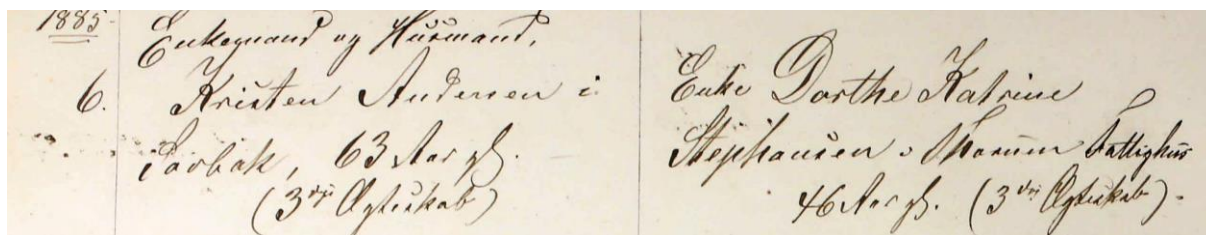 1885.
Enkemand og Husmand,
6. Kristen Andersen i
63 Aar gl.
(3die Ægteskab)
Enke Dorthe Katrine
Stephansen i Thorum Fattighus
46 Aar gl. (3die Ægteskab).